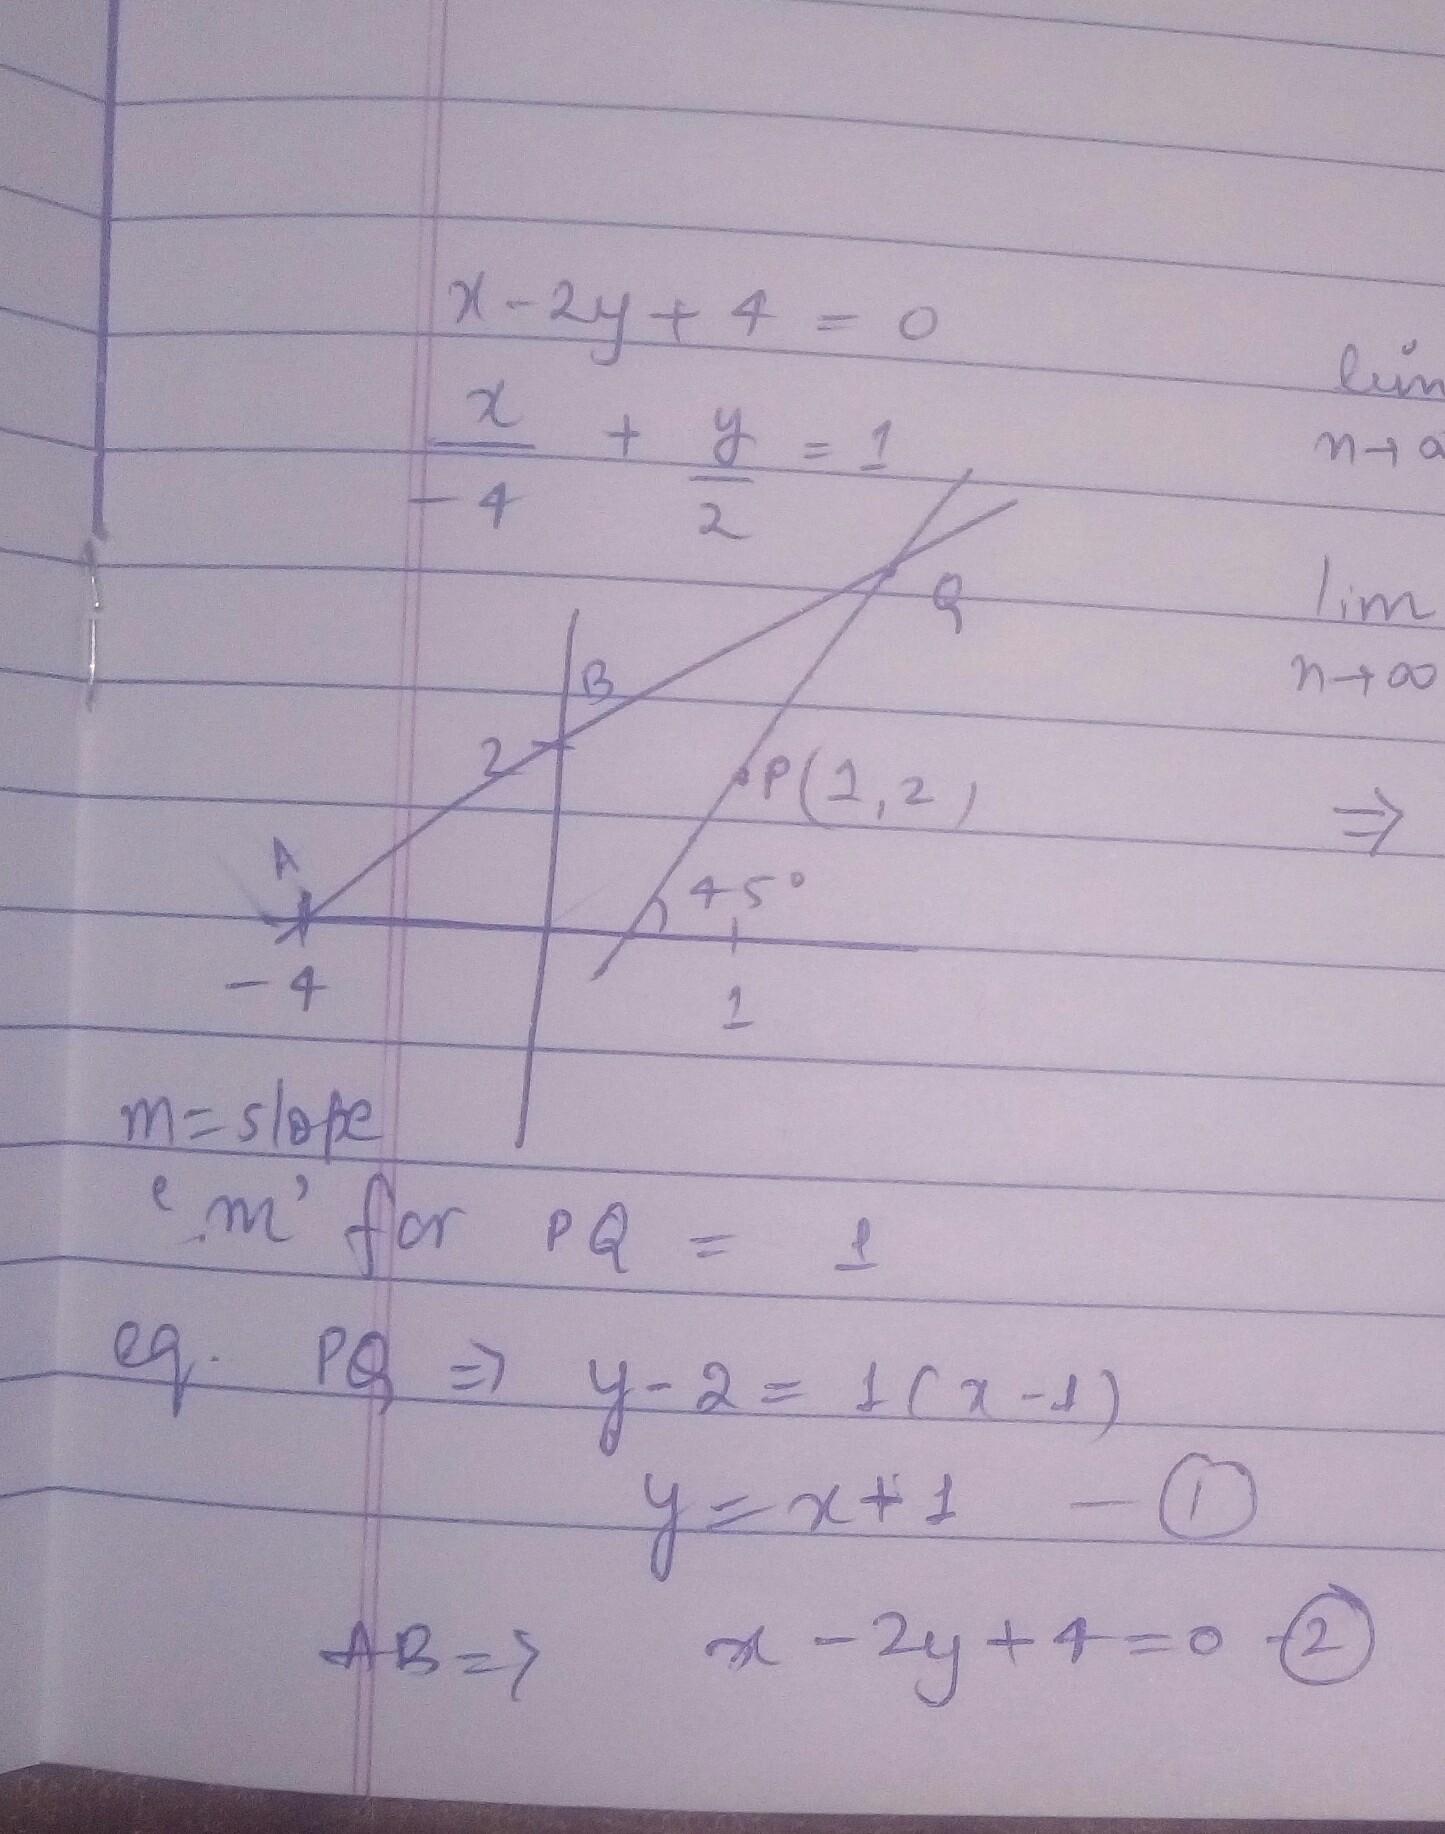 x - 2y + 4 = 0
x/-4 + y/2 = 1
lim
n→∞
Q
lim
n→∞
B
2
P(1,2)
⇒
A
45°
-4
1
m = slope
'm' for PQ = 1
eq. PQ ⇒ y - 2 = 1(x - 1)
y = x + 1 - ①
AB ⇒ x - 2y + 4 = 0 - ②